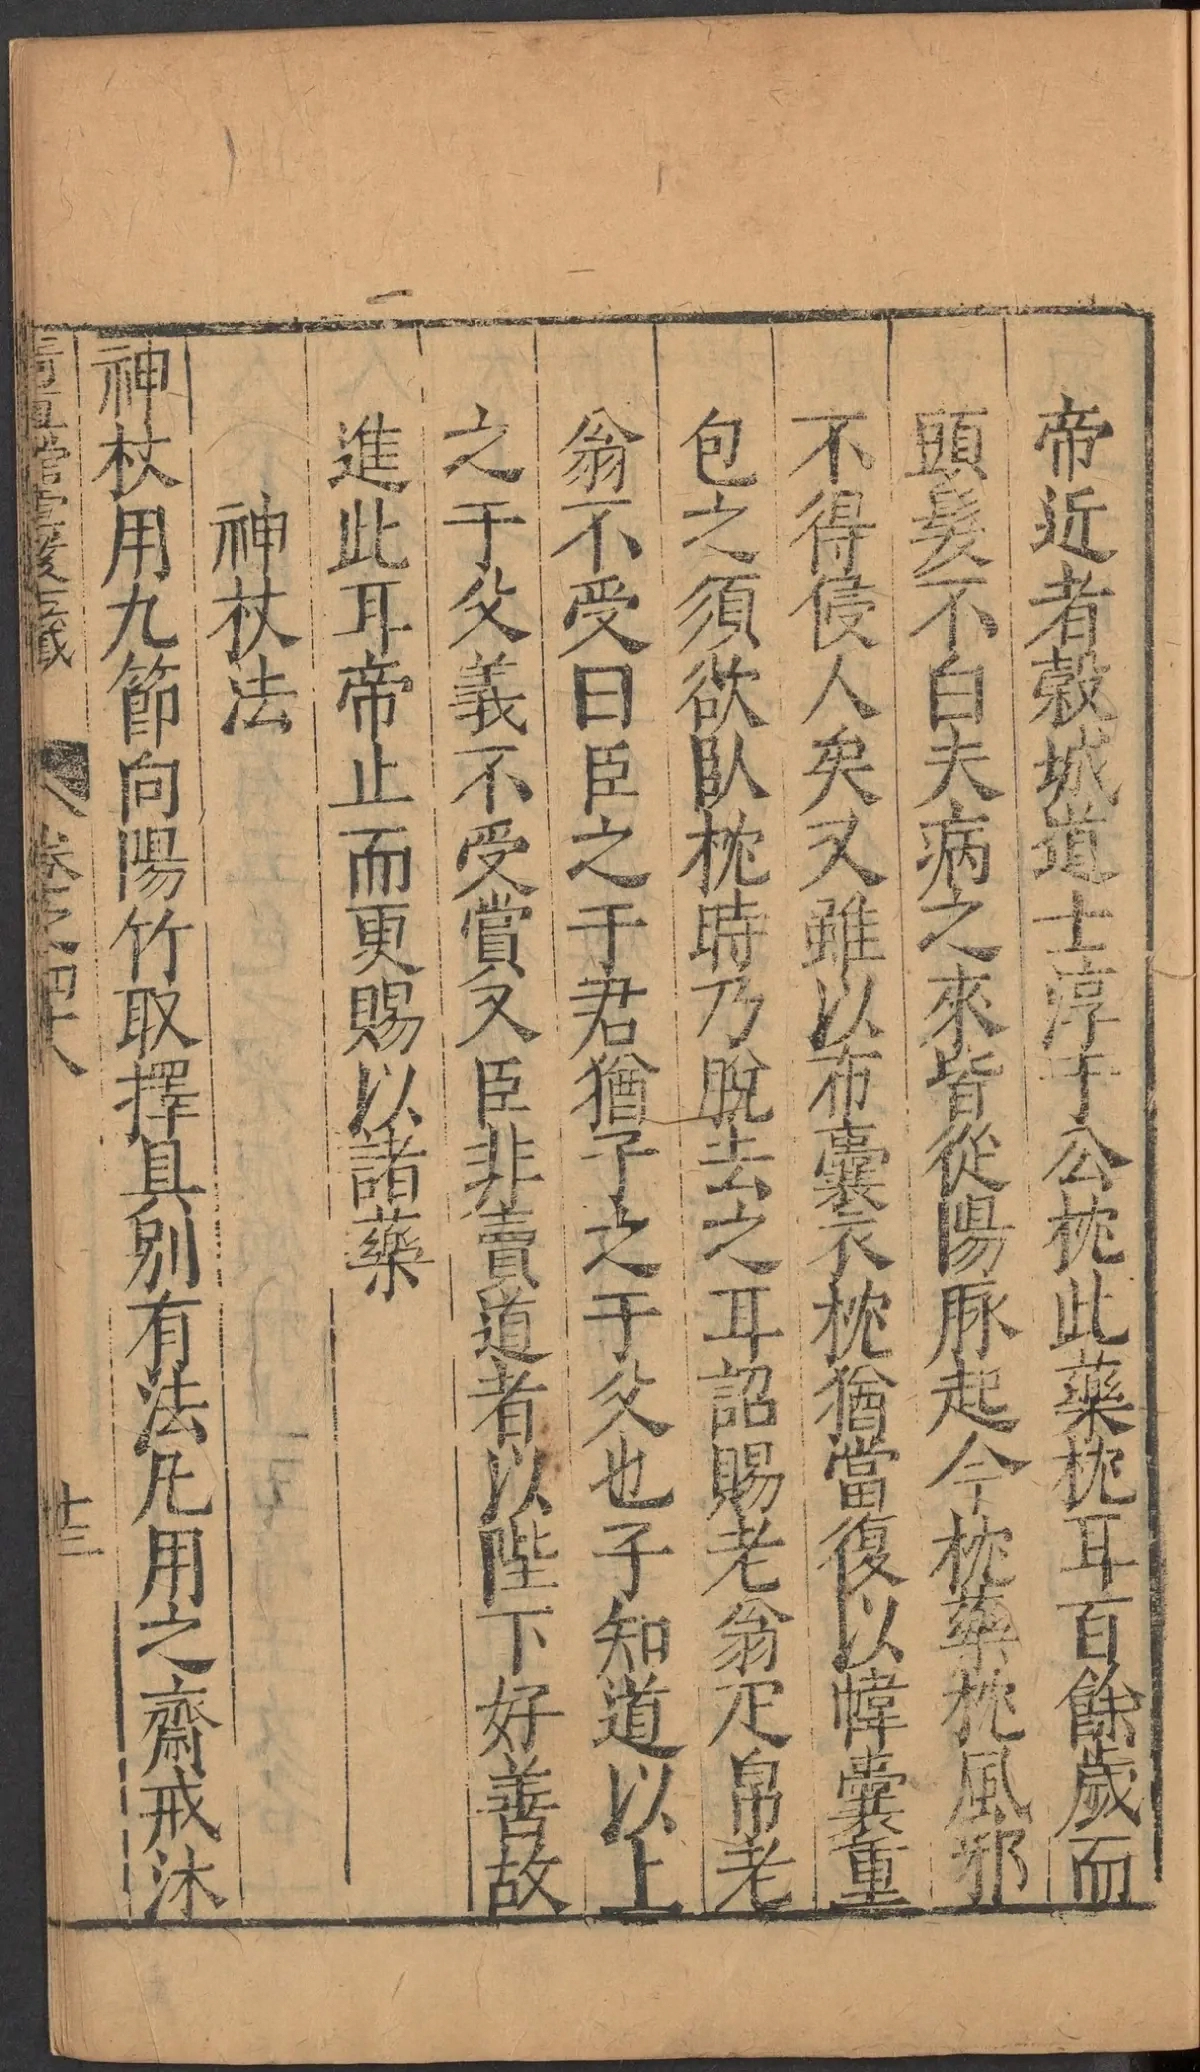 帝近者穀城道士淳于公枕此藥枕耳百餘歲而
頭髮不白夫病之來皆從陽脉起今枕藥枕風邪
不得侵人矣又雖以布囊衣枕猶當復以幃囊重
包之須欲臥枕時乃脫去之耳詔賜老翁疋帛老
翁不受曰臣之于君猶子之于父也子知道以上
之于父義不受賞又臣非賣道者以陛下好善故
進此耳帝止而更賜以諸藥
神杖法
神杖用九節向陽竹取擇具別有法凡用之齋戒沐
卷之四十八
十三